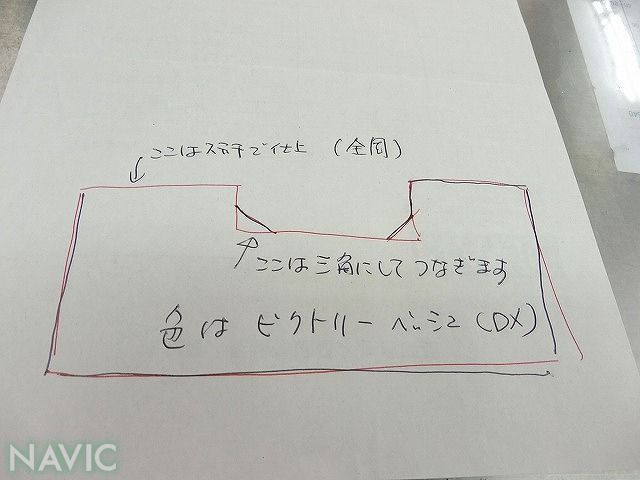 ここはステッチで仕上 (全周)
ここは三角にしてつなぎます
色は ビクトリーベージュ (DX)
NAVIC